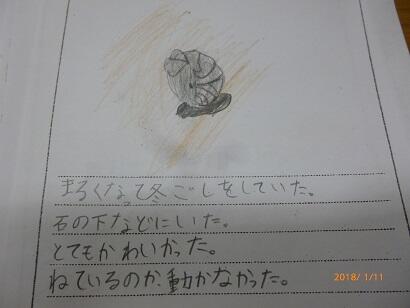 まるくなって冬ごしをしていた。
石の下などにいた。
とてもかわいかった。
ねているのか動かなかった。
2018/1/11